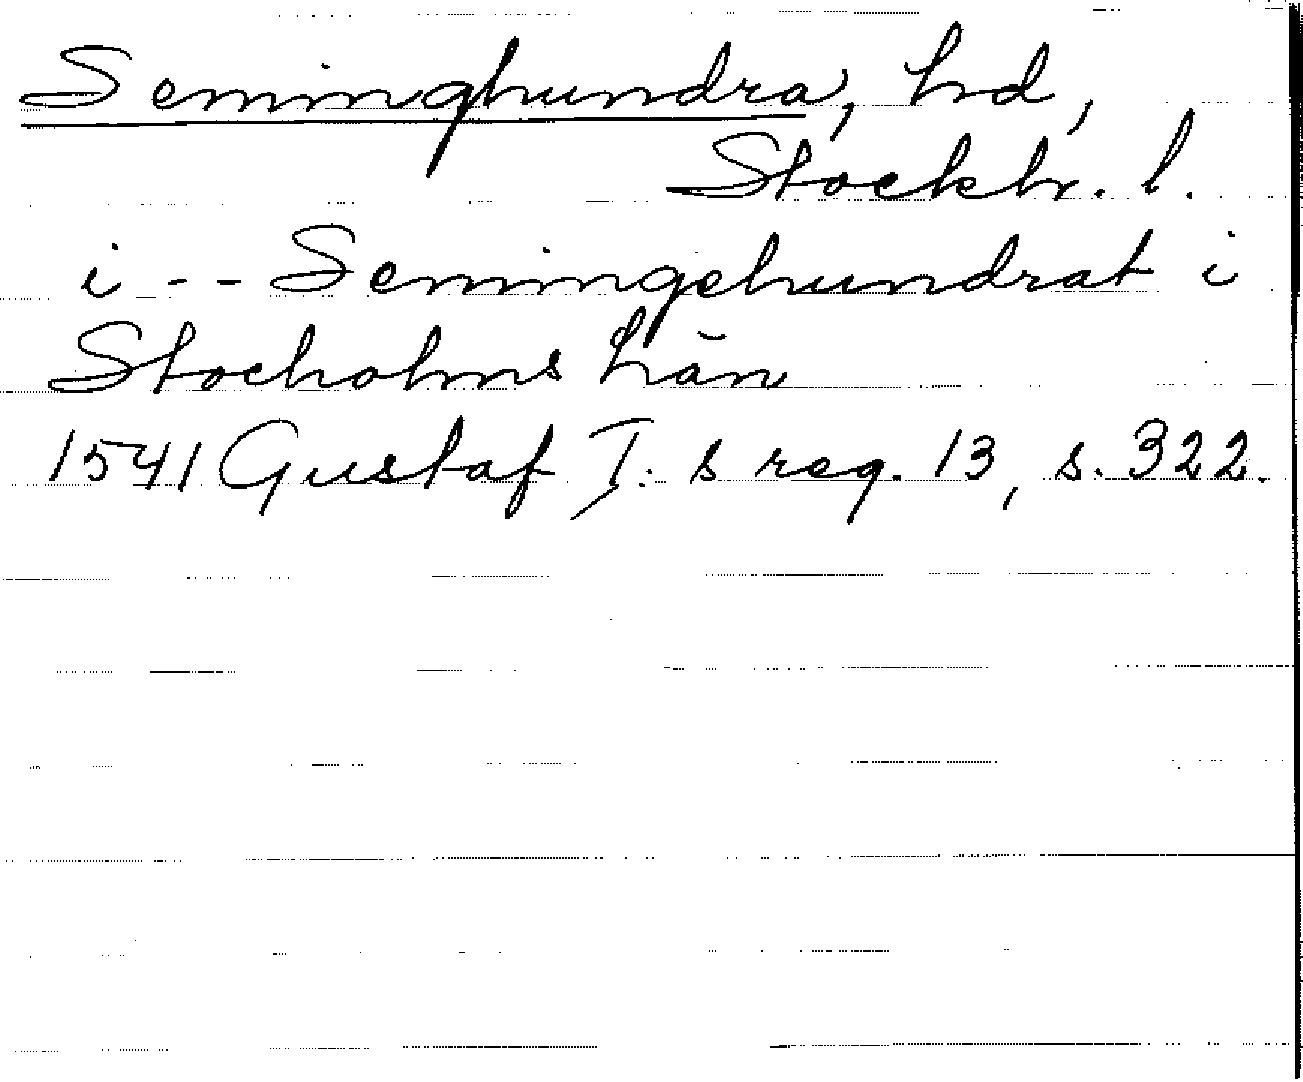 Seminghundra, hd,
Stockh. l.
i -- Semingehundrat i
Stocholms hän
1541 Gustaf I:s reg. 13, s. 322.